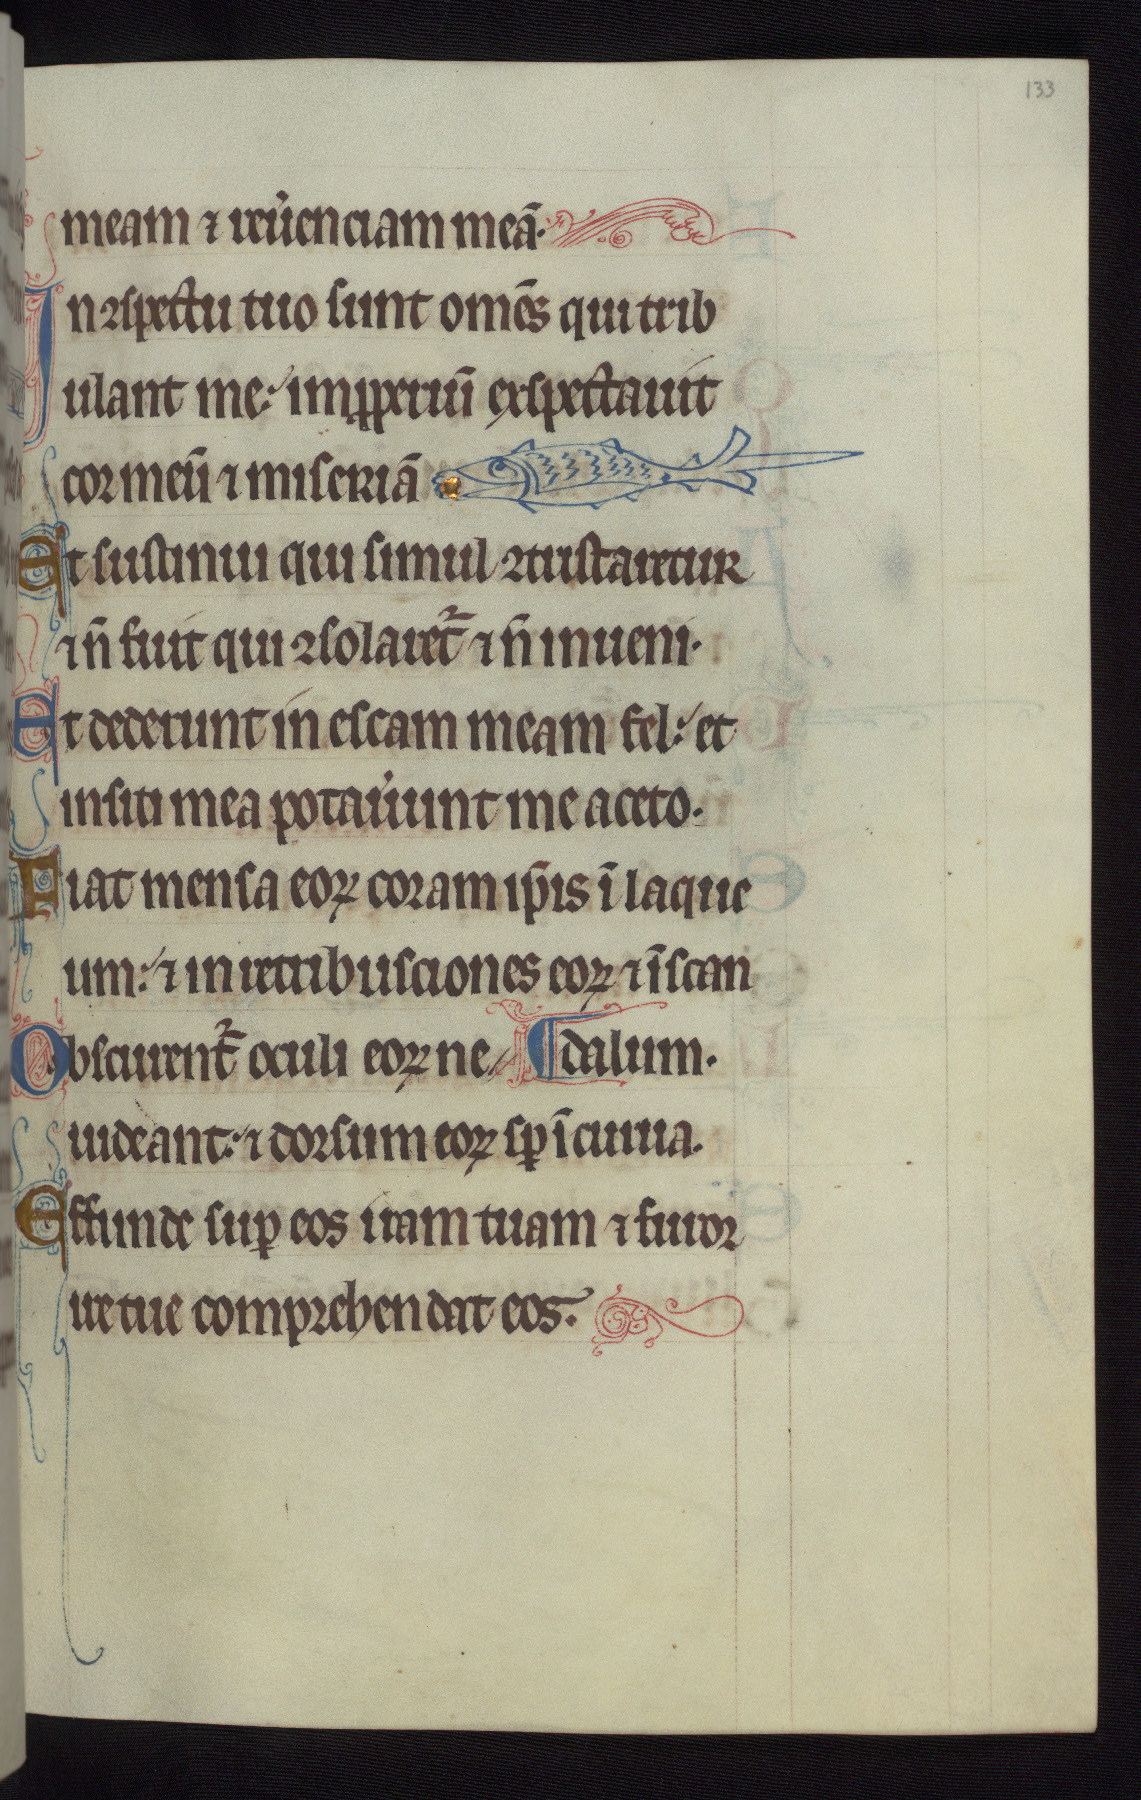 133
meam ⁊ reu̾enciam meã.
In ꝯspectu tuo sunt om̃es qui trib
ulant me: imꝓꝑeriũ exspectauit
cor meũ ⁊ miseriã
Et sustinui qui simul ꝯtristaretur
⁊ ñ fuit qui ꝯsolaret᷑ ⁊ ñ inueni.
Et dederunt in escam meam fel: et
in siti mea potau̾unt me aceto.
Fiat mensa eoꝝ coram ip̃is ĩ laque
um: ⁊ in retribusciones eoꝝ ⁊ ĩ scan
Obscurent᷑ oculi eoꝝ ne // ¶ dalum.
uideant: ⁊ dorsum eoꝝ sꝑ ĩcurua.
Effunde suꝑ eos iram tuam ⁊ furor
ire tue comprehendat eos.